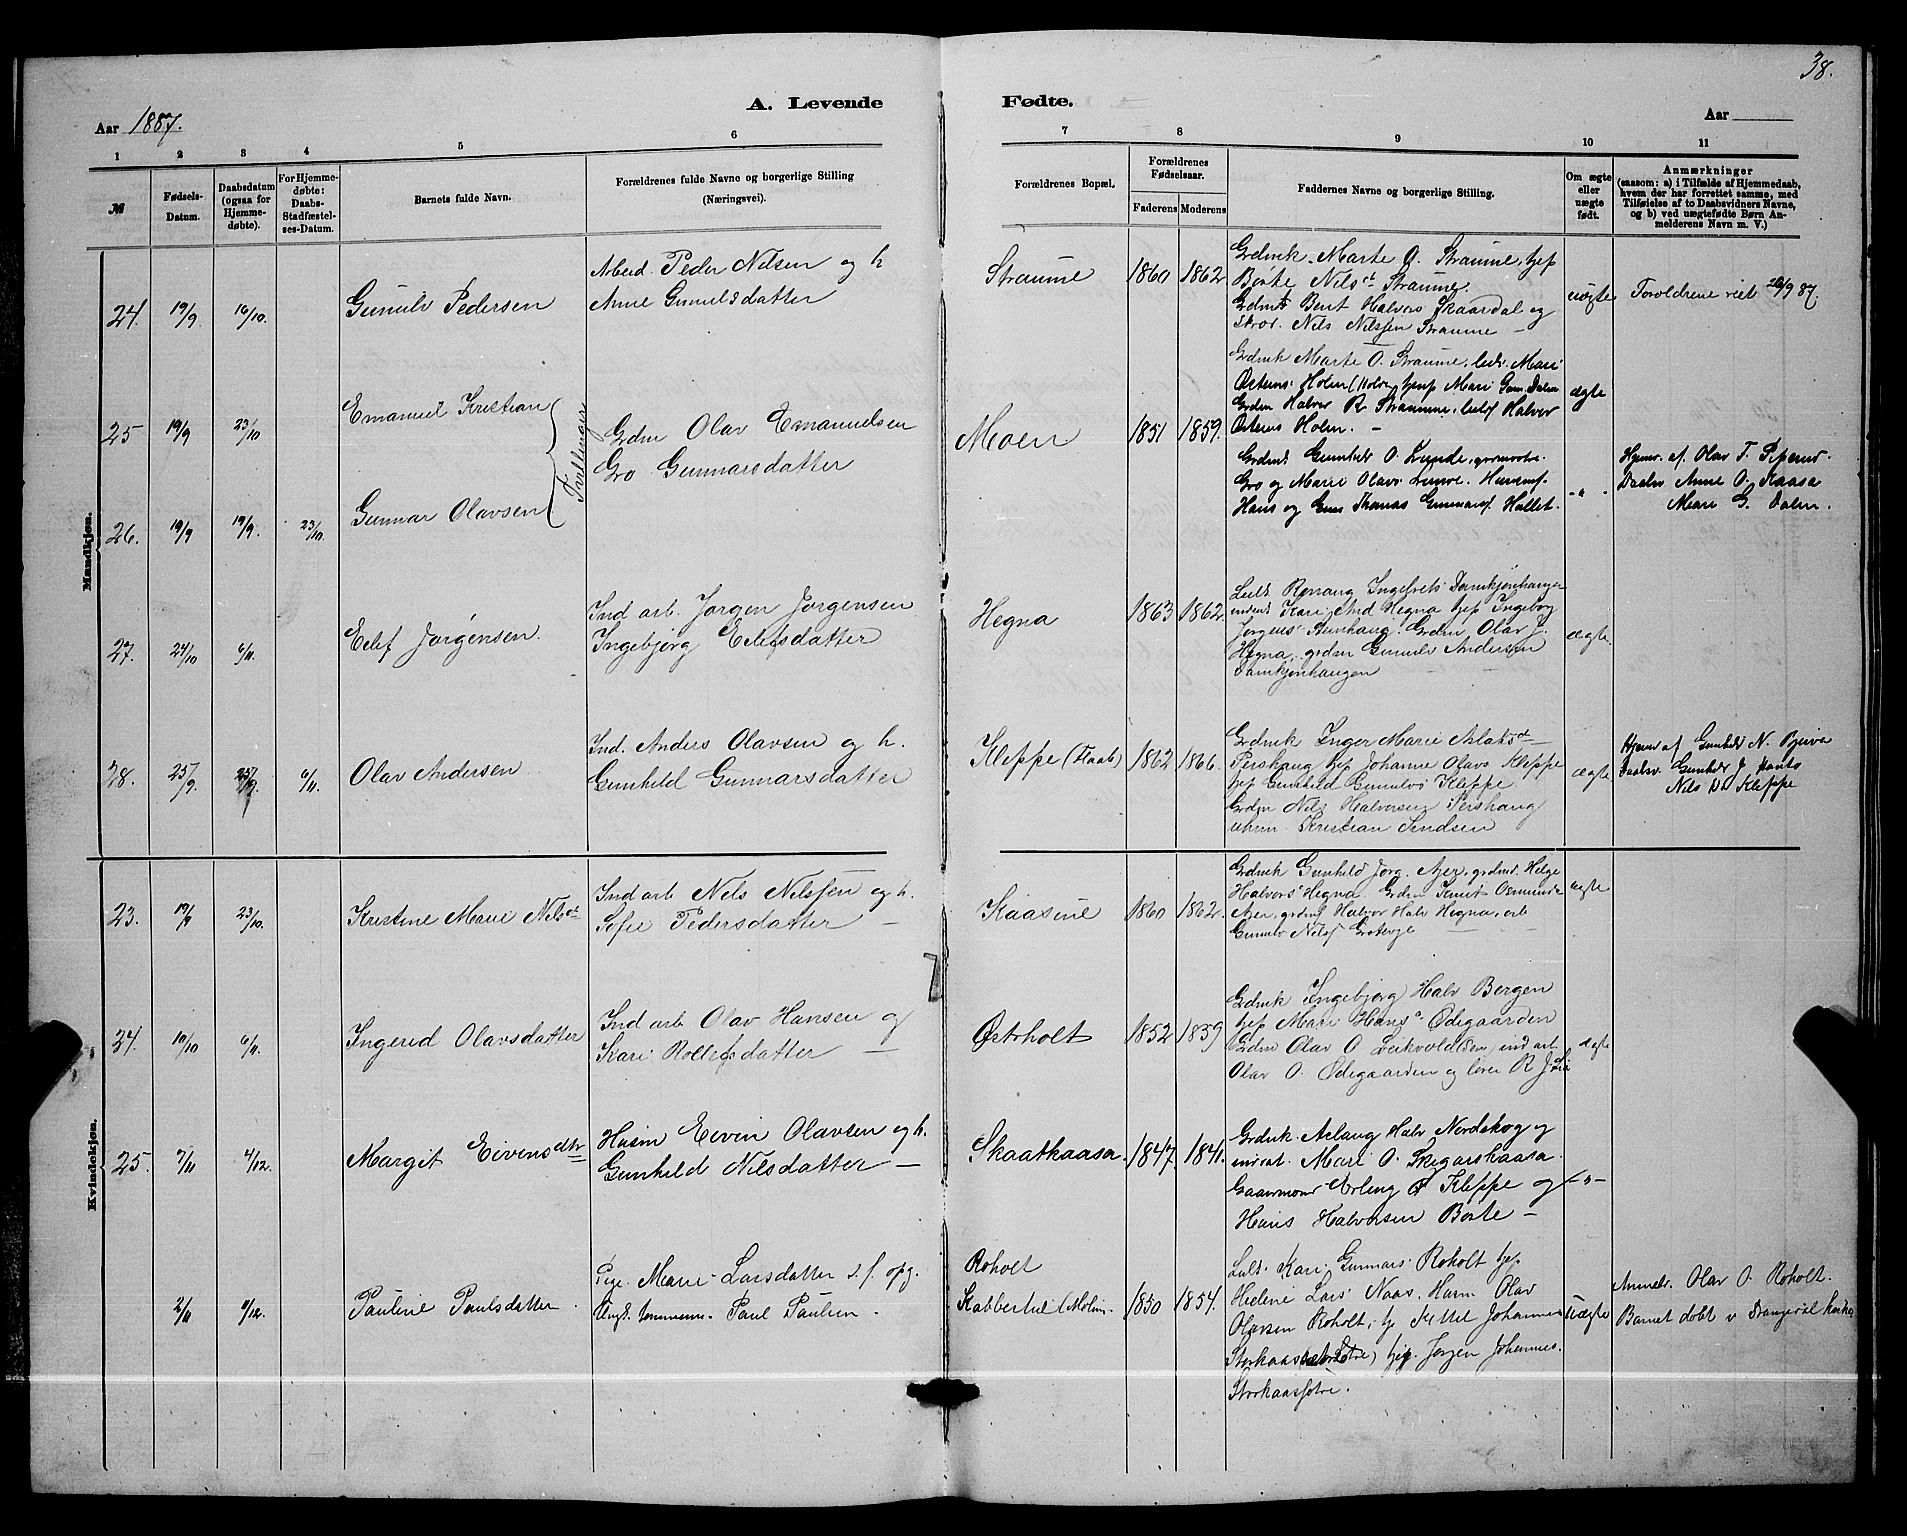 38.
A. Levende
Fødte.
Aar 1887.
Aar
1 2 3 4 5 6
7 8 9 10 11
№
Fødsels-Datum.
Daabsdatum (ogsaa for Hjemmedøbte).
For Hjemmedøbte: Daabs-Stadfæstelses-Datum.
Barnets fulde Navn.
Forældrenes fulde Navne og borgerlige Stilling (Næringsvei).
Forældrenes Bopæl.
Forældrenes Fødselsaar.
Faderens Moderens
Faddernes Navne og borgerlige Stilling.
Om ægte eller uægte født.
Anmærkninger
(saasom: a) i Tilfælde af Hjemmedaab, hvem der har forrettet samme, med Tilføielse af to Daabsvidners Navne, og b) ved uægtefødte Børn Anmelderens Navn m. V.)
Mandkjøn.
24. 19/9 16/10 Gunulv Pedersen
Arbeid. Peder Nilsen og h
Anne Gunulsdatter
Straume 1860 1862
Grdmk. Marte O. Straume, hjep
Børte Nilsd. Straume.
Grdmd Gent Halvors Skaardal og
Skrœd. Nils Nilsjen Straume —
uægte
Foreldrene viet 26/9 87.
25 19/9 23/10 Emanuel Kristian
Tvillinger
Grdm Olav Emanuelsen
Gro Gunnarsdatter
Moen 1851 1859.
Grdmk Marte O. Straume, leds. Mari
Østens. Holen (Holv hjep Mari Gunn. Dalen
Grdm Halvor R. Straume, leds Halvor
Østens Holen. —
ægte
26. 19/9 19/9. 23/10 Gunnar Olavsen
Grdmd Gunhild O. Lunde,
Gro og Marie Olavs Lunde. Husmf.
Hans og Thomas Gunnarsf. Hallet.
-"-
Hjemd. af. Olav T. Piperud.
Daabsv Anne O. Kaasa
Mari G. Dalen.
27. 24/10 6/11. Eilef Jørgensen.
Ind arb. Jørgen Jørgensen
Ingebjørg Eilefsdatter
Hegna 1863 1862.
Leds Ronaug Ingefrets Damkjønhaugen
Kari And Hegna hjep Ingeborg
Jørgens Grdm Olav J.
Hegna, grdm Gunnulv Andersen
Damkjønhaugen
ægte
28. 25/9. 25/9 6/11. Olav Andersen
Ind. Anders Olavsen og h.
Gunhild Gunnarsdatter
Kleppe (Flaab) 1862 1866.
Grdmk Inger Marie Aslaksd
Pershaug hjep Johanne Olavs Kleppe
hjep Gunhild Gunulvs Kleppe
Grdm Nils Halvorsen Pershaug
Kristian Sindsen
ægte
Hjemd af Gunhild N. Bjerva
Daabsv. Gunhild J
Nils D. Kleppe
Kvindekjøn.
23. 19/9 23/10. Kristine Marie Nilsd
Ind arb Nils Nilsjen og h.
Sofie Pedersdatter —
Kaasine 1860 1862.
Grdmk Gunhild Jørg. Ajer, grdmd Helge
Halvors Hegna Grdm Knut Osmunds
Ajer, grdmf Halvor Halv Hegna, arb
Gunulv Nilsf
ægte
24. 10/10 6/11. Ingerid Olavsdatter
Ind arb Olav Hansen og
Kari Rollefsdatter —
Østrholt 1852 1859
Grdmk Ingebjørg Halv Bergen
hjep Mari Hans Ødegaarden
Grdm Olav O. Leikvold, ind arb
Olav O. Ødegaarden og lœrer R J Lia
ægte
25. 7/11 4/12. Margit Eivensdtr
Husm Eeven Olavsen og h.
Gunhild Nilsdatter —
Skaatkaasa. 1847 1841.
Grdmk. Aslaug Halv Nordskog og
Mari O. Skegarskaasa.
Gaardmænd Erling O Kleppe og
Hans Halvorsen Børte —
-"-
2/11 4/12. Pauline Paulsdatter.
Pige. Marie Larsdatter s. f. opg.
Ungk. tømmerm. Paul Paulsen.
Roholt
Kabberhul (Molen 1850 1854.
Leds. Kari Gunnars Roholt hjep
Helene Lars Naas. Husm Olav
Olavsen Roholt, hj Kittel Johannes
hjep. Jørgen Johannes.
Storkaassetre.
Uægte
Anmeldr. Olav O. Roholt.
Barnet døbt v Drangedal kirke